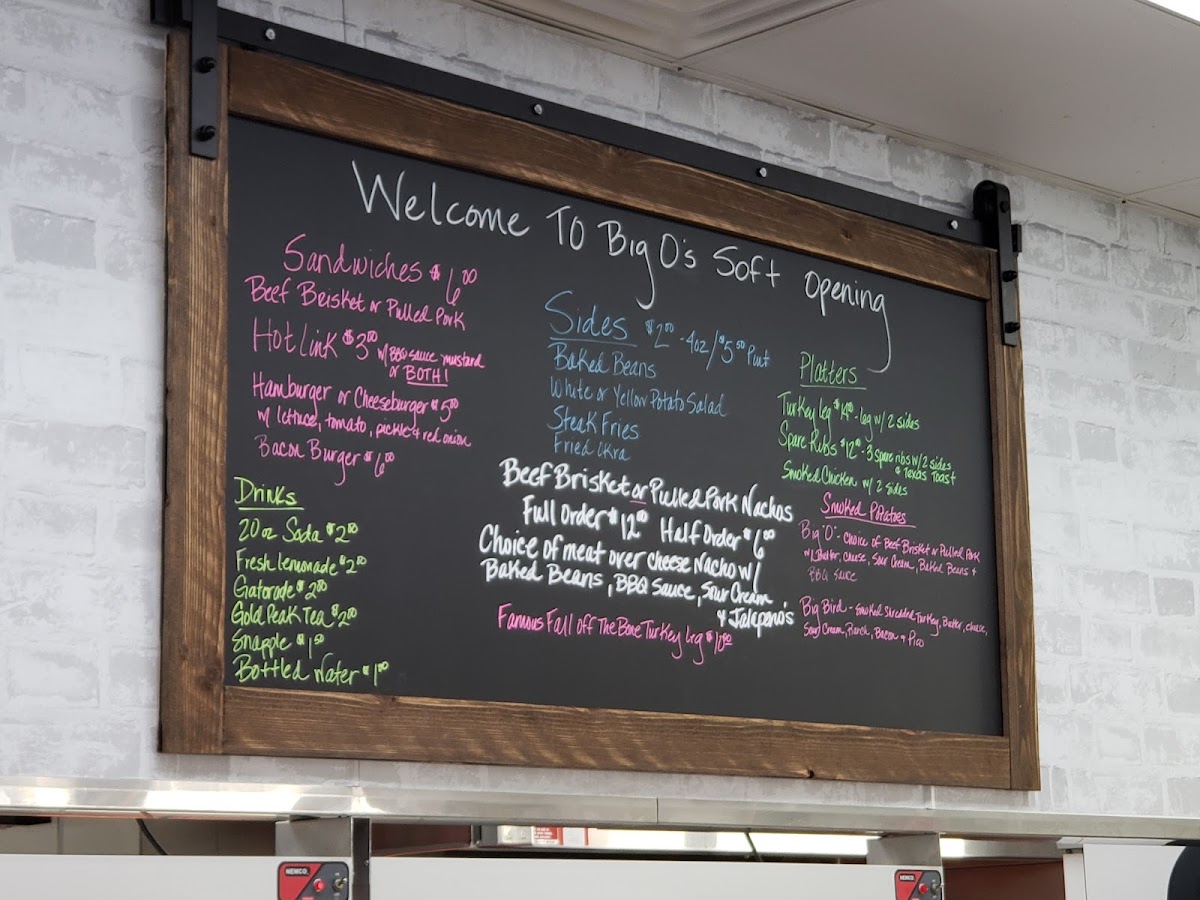 Welcome To Big O's Soft Opening
Sandwiches $6.00
Beef Brisket or Pulled Pork
Hot Link $3.00 w/ BBQ sauce mustard
or BOTH!
Hamburger or Cheeseburger $5.00
w/ lettuce, tomato, pickle & red onion
Bacon Burger $6.00
Drinks
20 oz Soda $2.00
Fresh Lemonade $2.00
Gatorade $2.00
Gold Peak Tea $2.00
Snapple $1.50
Bottled Water $1.00
Sides $2.00 - 4oz / $5.50 Pint
Baked Beans
White or Yellow Potato Salad
Steak Fries
Fried Okra
Beef Brisket or Pulled Pork Nachos
Full Order $12.00 Half Order $6.00
Choice of meat over cheese Nacho w/
Baked Beans, BBQ Sauce, Sour Cream
& Jalapeno's
Famous Fall off The Bone Turkey Leg $10.00
Platters
Turkey leg $14.00 - leg w/ 2 sides
Spare Ribs $12.00 - 3 spare ribs w/ 2 sides
& Texas Toast
Smoked Chicken w/ 2 sides
Smoked Potatoes
Big "O" - Choice of Beef Brisket or Pulled Pork
w/ Butter, cheese, Sour Cream, Baked Beans &
BBQ Sauce
Big Bird - Smoked Shredded Turkey, Butter, cheese,
Sour Cream, Ranch, Bacon & Pico
NEMCO
NEMCO